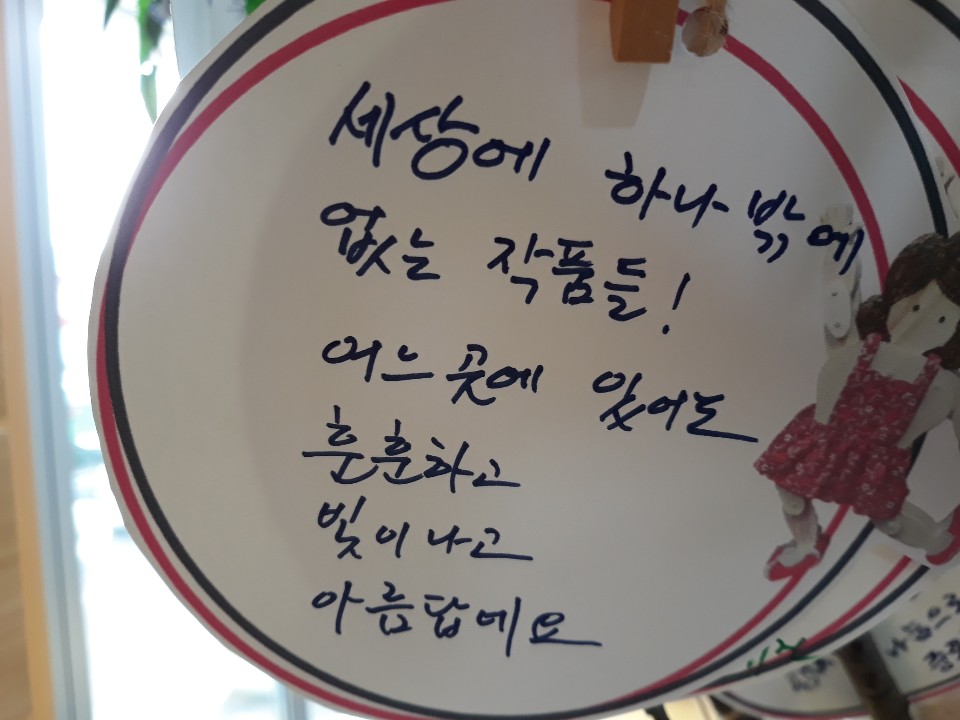 세상에 하나밖에
없는 작품들!
어느곳에 있어도
훈훈하고
빛이나고
아름답네요